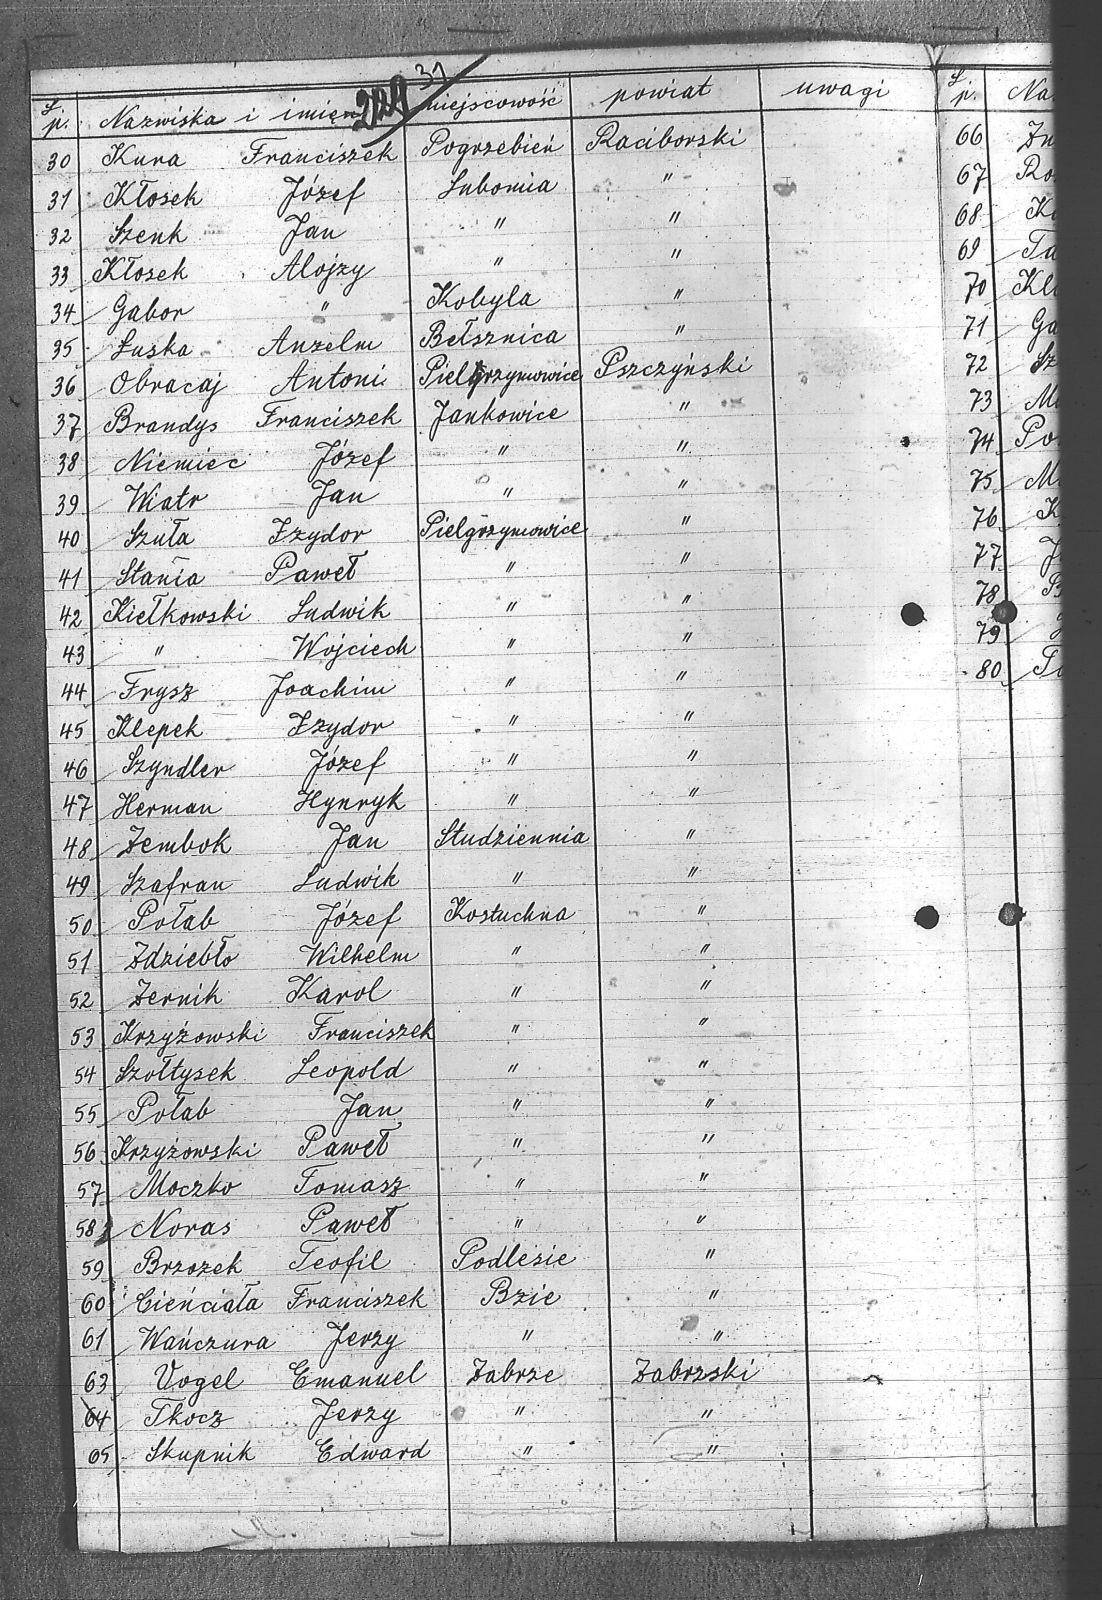 31
224
L.p. Nazwiska i imiena miejscowość powiat uwagi
30 Kura Franciszek Pogrzebień Raciborski
31 Kłosek Józef Lubomia "
32 Szenk Jan " "
33 Kłosek Alojzy " "
34 Gabor " Kobyla "
35 Łuska Anzelm Bełsznica "
36 Obracaj Antoni Pielgrzymowice Pszczyński
37 Brandys Franciszek Jankowice "
38 Niemiec Józef " "
39 Wiatr Jan " "
40 Szuła Izydor Pielgrzymowice "
41 Stania Paweł " "
42 Kiełkowski Ludwik " "
43 " Wojciech " "
44 Frysz Joachim " "
45 Klepek Izydor " "
46 Szyndler Józef " "
47 Herman Hynryk " "
48 Zembok Jan Studziennia "
49 Szafran Ludwik " "
50 Połab Józef Kostuchna "
51 Zdziebło Wilhelm " "
52 Zernik Karol " "
53 Krzyżowski Franciszek " "
54 Szołtysek Leopold " "
55 Połab Jan " "
56 Krzyżowski Paweł " "
57 Moczko Tomasz " "
58 Noras Paweł " "
59 Brzozek Teofil Podlesie "
60 Cieńciała Franciszek Bzie "
61 Wańczura Jerzy " "
63 Vogel Emanuel Zabrze Zabrzski
64 Tkocz Jerzy " "
65 Skupnik Edward " "
L.p. Na
66
67 Ro
68
69
70 Kl
71 Ga
72 Sz
73 M
74 Po
75 M
76 K
77 J
78 B
79
80